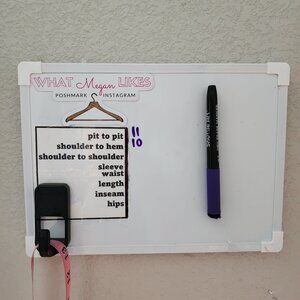 WHAT Megan LIKES
POSHMARK INSTAGRAM
pit to pit 11
shoulder to hem 10
shoulder to shoulder
sleeve
waist
length
inseam
hips